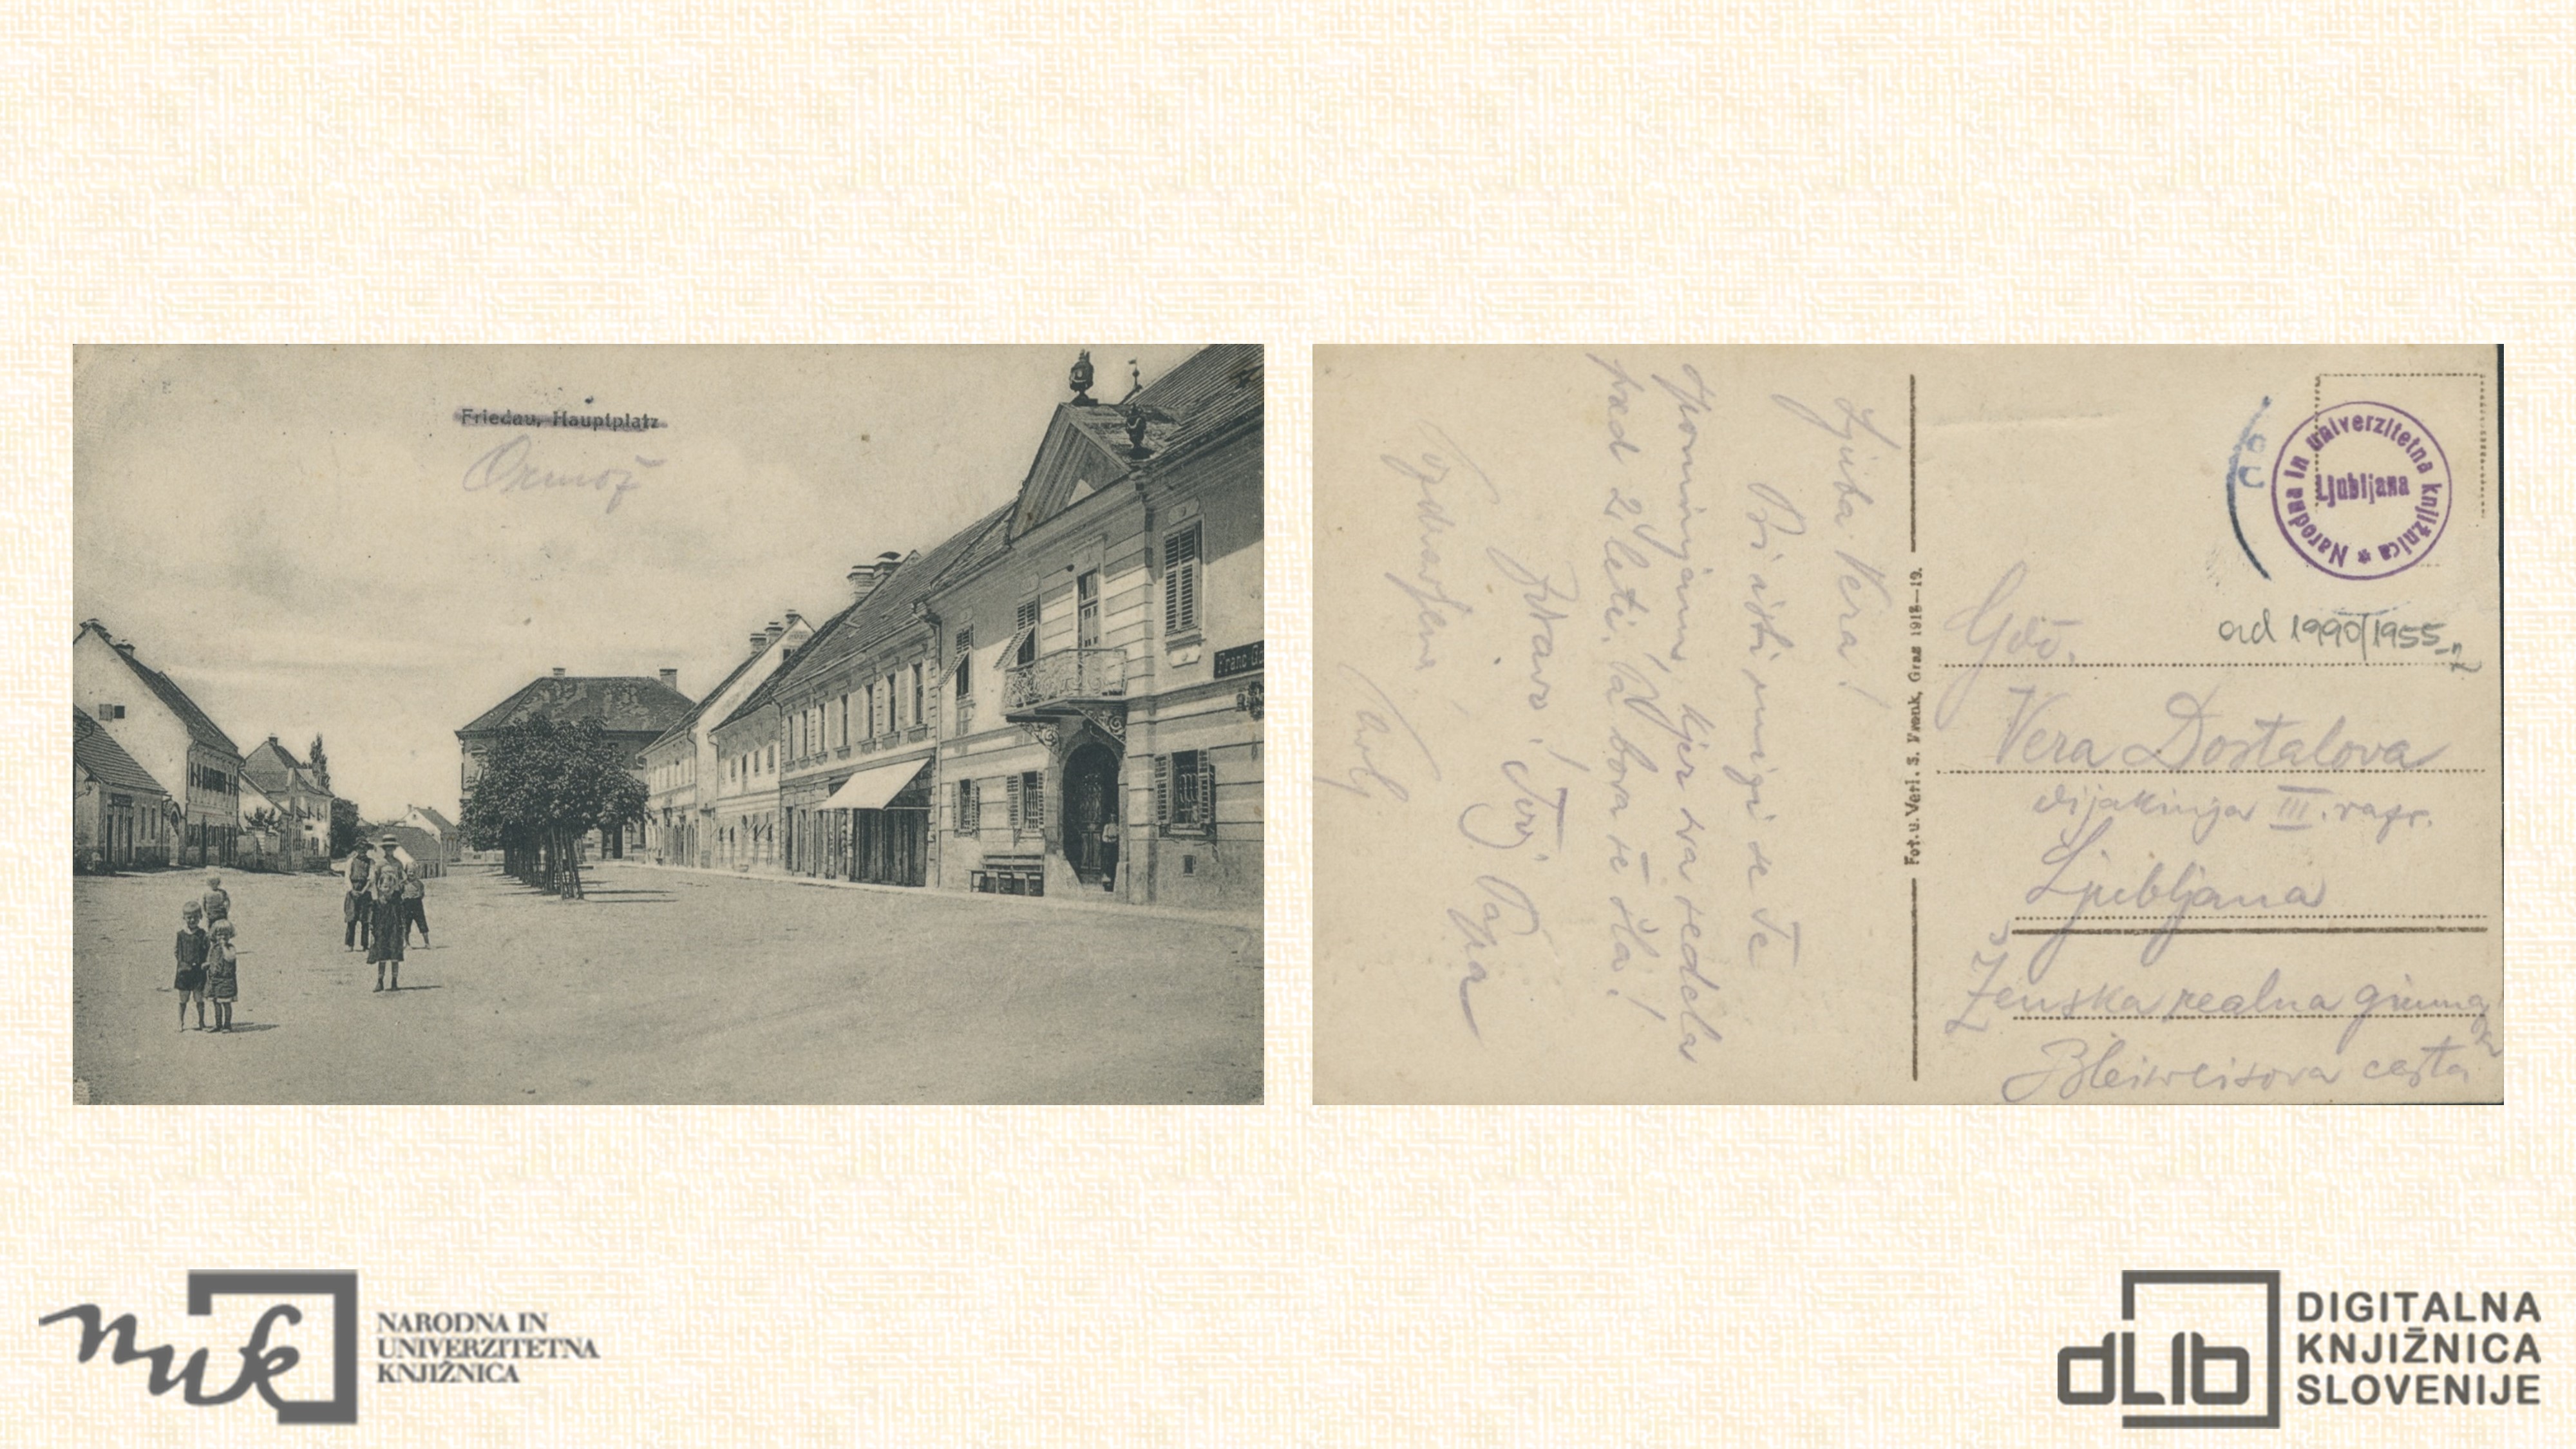 Friedau, Hauptplatz
Ormož
Franc G
Ljuba Vera!
Pri isti mizi se Te
spominjam, kjer sva sedela
pred 2 leti. Pa bova še šla!
Zdravo! Tvoj Papa
Fot. u. Verl. S. Frank, Graz 1918—19.
Narodna in univerzitetna knjižnica
Ljubljana
ad 1990/1955
Gdč.
Vera Dostalova
dijakinja III. razr.
Ljubljana
Ženska realna gimnazija
Bleiweisova cesta
nuk
NARODNA IN
UNIVERZITETNA
KNJIŽNICA
dLib
DIGITALNA
KNJIŽNICA
SLOVENIJE